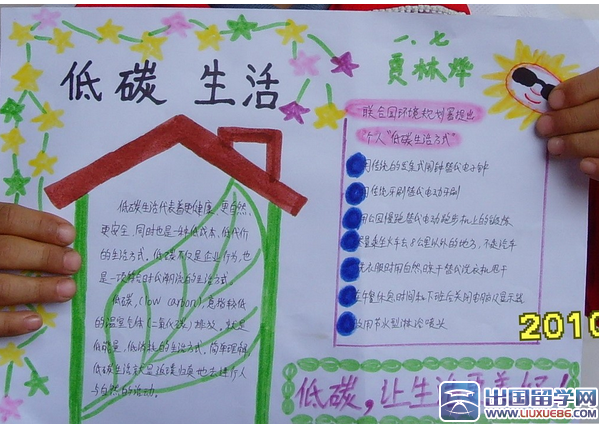 低碳 生活
一、七
贾林烨
联合国环境规划署提出
个人“低碳生活方式”
用传统的发条式闹钟替代电子钟
用传统牙刷替代电动牙刷
用公园慢跑替代电动跑步机上的锻炼
尽量乘坐火车去8公里以外的地方,不乘汽车
洗衣服时用自然晾干替代洗衣机甩干
在午餐休息时间和下班后关闭电脑及显示器
改用节水型淋浴喷头
低碳生活代表着更健康、更自然、
更安全,同时也是一种低成本、低代价
的生活方式。低碳不仅是企业行为,也
是一项符合时代潮流的生活方式。
低碳,(low carbon),意指较低
的温室气体(二氧化碳)排放,就是
低能量,低消耗的生活方式,简单理解,
低碳生活就是返璞归真地去进行人
与自然的活动。
低碳,让生活更美好!
2010
出国留学网
WWW.LIUXUE86.COM